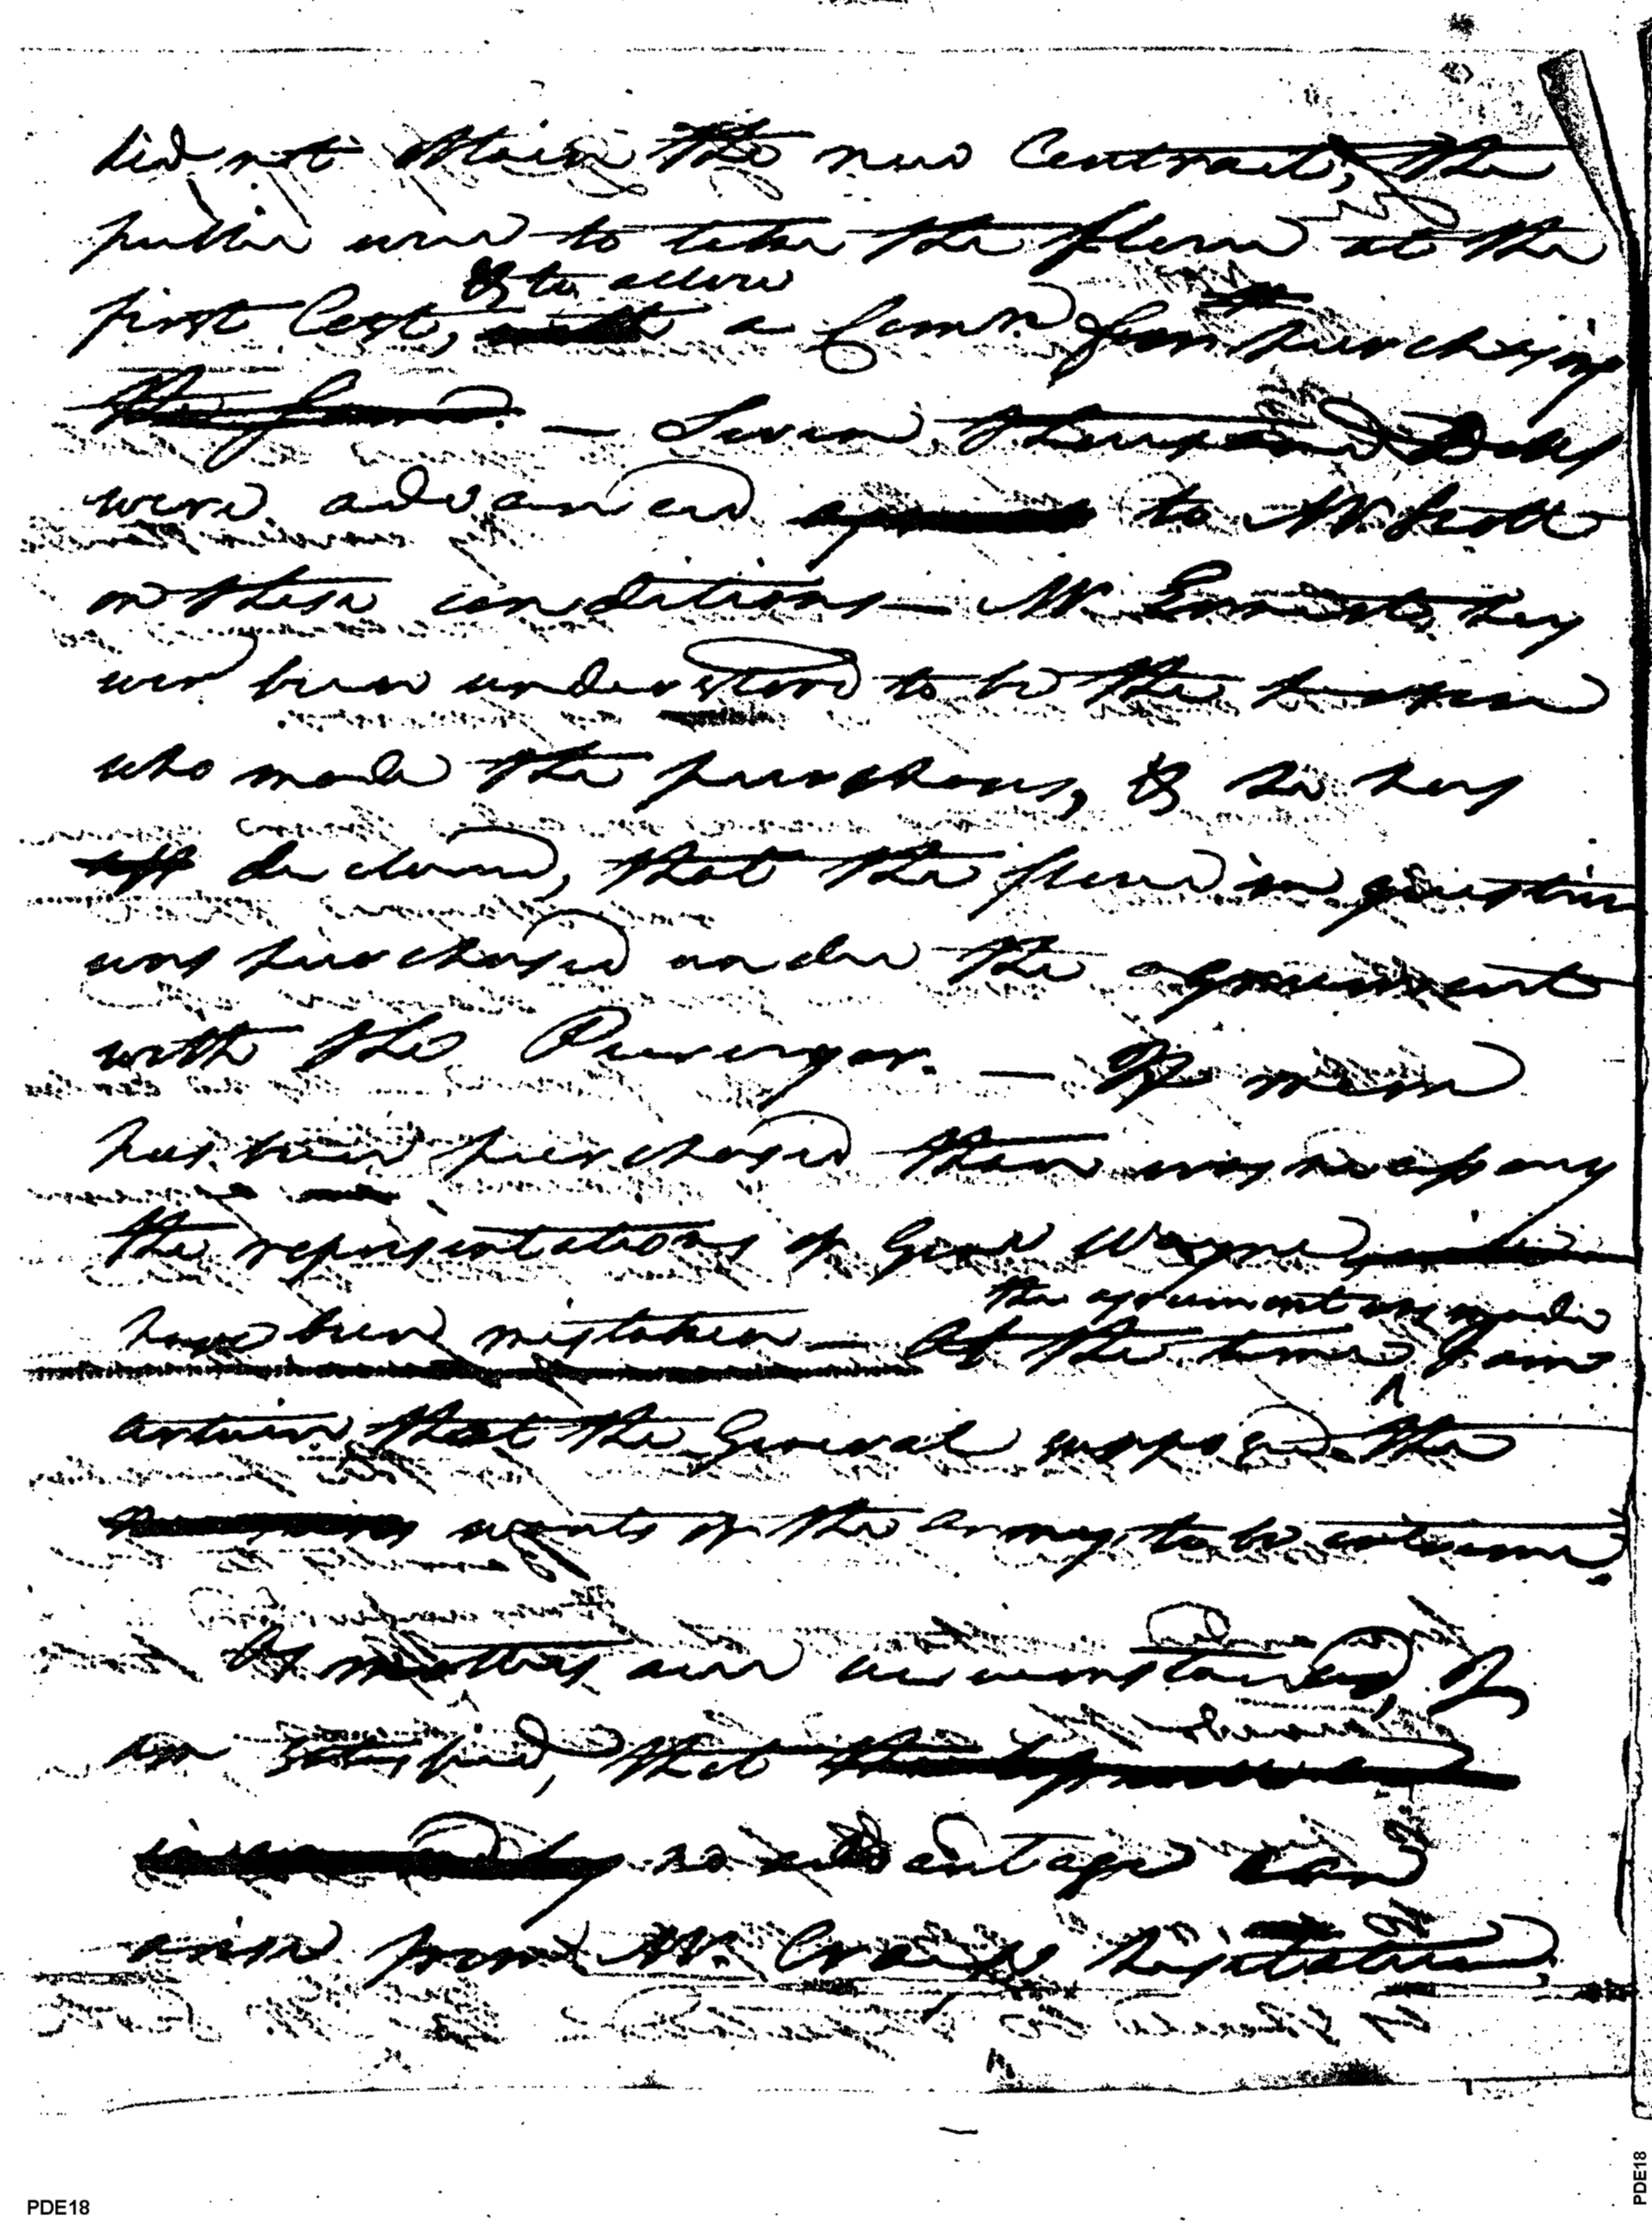 did not obtain the new Contract, the
public were to take the flour at the
& to allow
first Cost, with a Comn. for purchasing
the same. — Seven thousand Dolls
were advanced to Mr. Scott
on these conditions — Mr. Ernest, has
ever been understood to be the person
who made the purchases, & he has
declared, that the flour in question
was purchased under the agreement
with the Purveyor. — If more
has been purchased than was necessary
the representations of Genl Wayne
the agreement was made
have been mistaken — At the time I am
certain that the General supposed the
wants of the army to be extreme.
As matters are circumstanced, I
am satisfied, that
no advantage can
arise from Mr. Craig's hesitation,
PDE18
PDE18